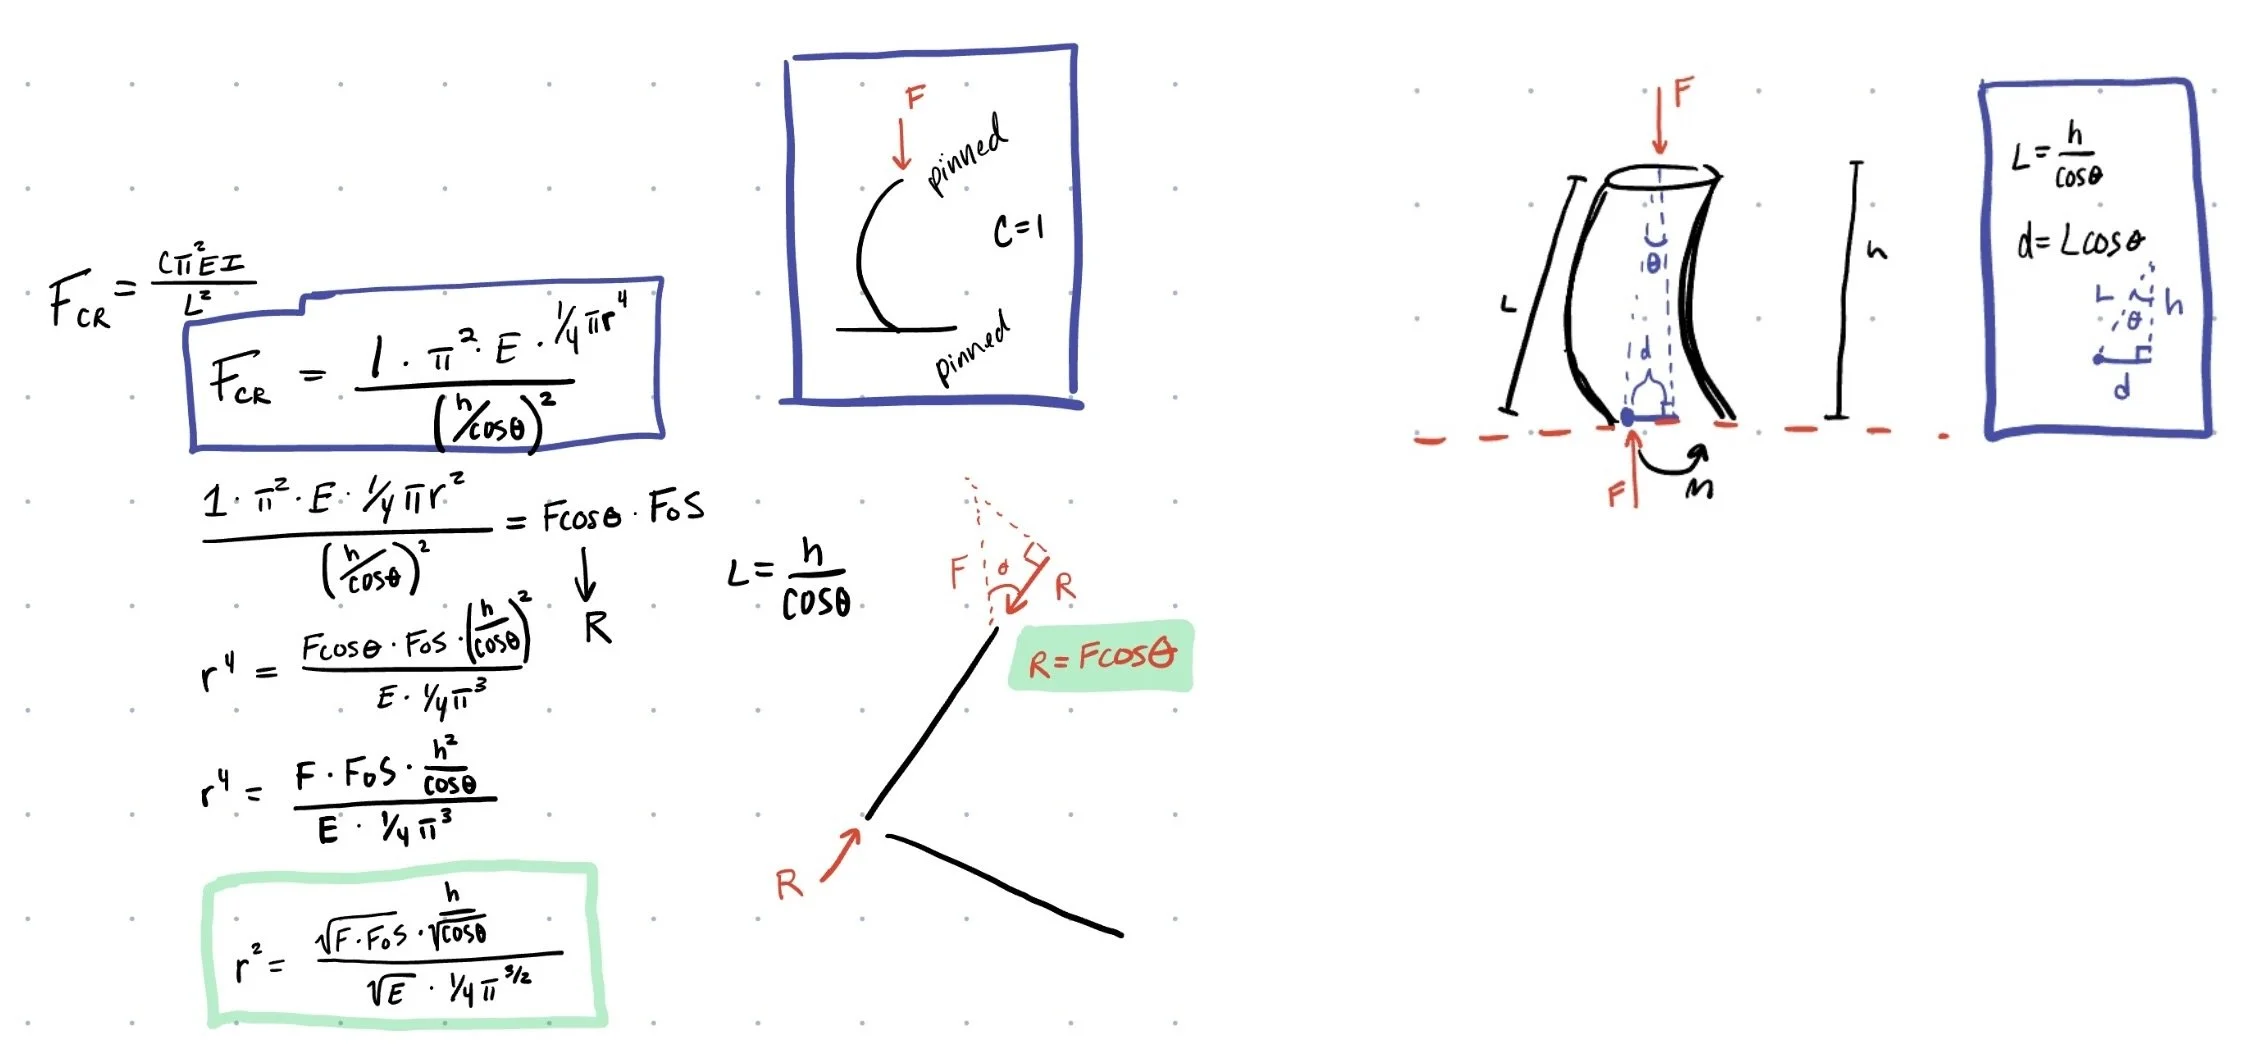 F_CR = Cπ²EI / L²
F_CR = 1 · π² · E · 1/4 πr⁴ / (h/cosθ)²
1 · π² · E · 1/4 πr² / (h/cosθ)² = Fcosθ · FoS
↓
R
r⁴ = Fcosθ · FoS · (h/cosθ)² / E · 1/4 π³
r⁴ = F · FoS · h²/cosθ / E · 1/4 π³
r² = √F·FoS · h/√cosθ / √E · 1/4 π^3/2
F
pinned
C=1
pinned
L = h/cosθ
F
θ
R
R = Fcosθ
R
F
L
θ
h
d
F
M
L = h/cosθ
d = Lcosθ
L
h
θ
d